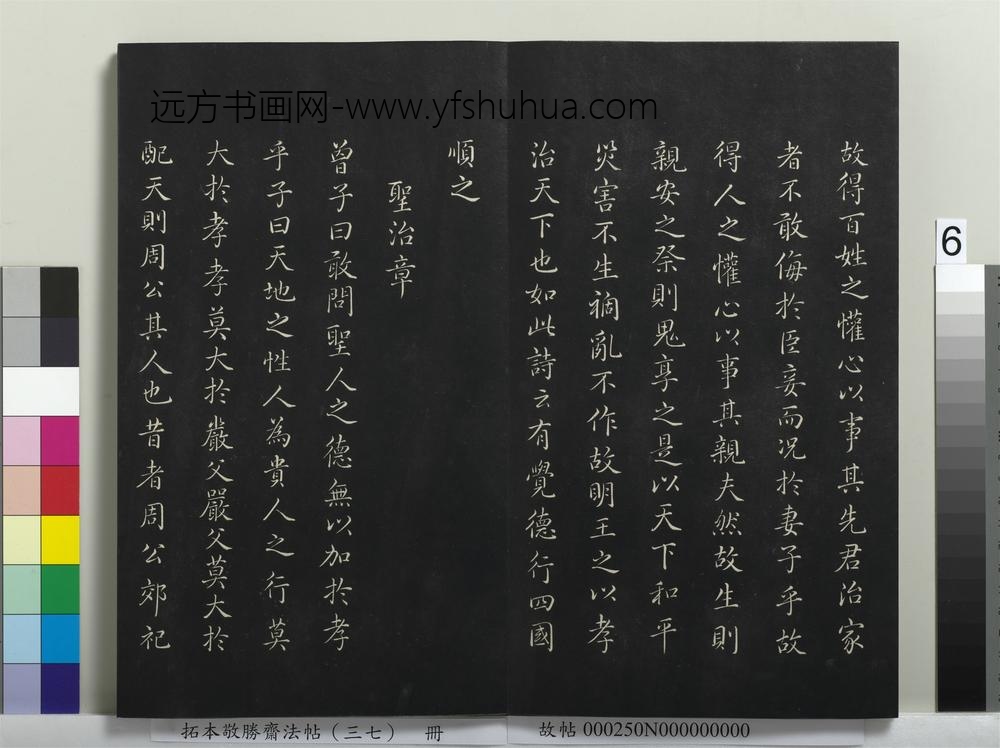 远方书画网-www.yfshuhua.com
故得百姓之懽心以事其先君治家
者不敢侮於臣妾而况於妻子乎故
得人之懽心以事其親夫然故生則
親安之祭則鬼享之是以天下和平
災害不生禍亂不作故明王之以孝
治天下也如此詩云有覺德行四國
順之
聖治章
曾子曰敢問聖人之德無以加於孝
乎子曰天地之性人為貴人之行莫
大於孝孝莫大於嚴父嚴父莫大於
配天則周公其人也昔者周公郊祀
6
拓本敬勝齋法帖（三七） 冊
故帖 000250N000000000